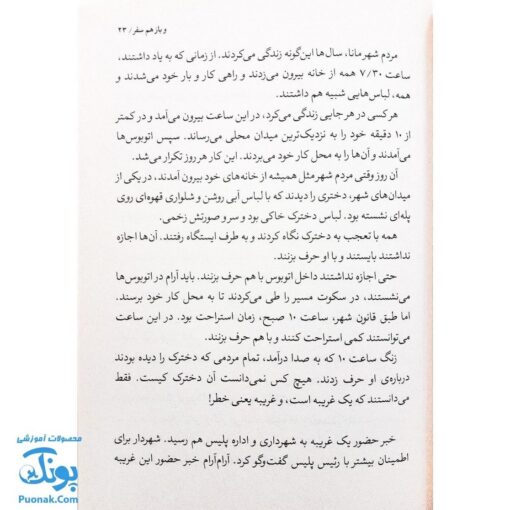 و باز هم سفر / ۲۳
مردم شهر مانا، سال‌ها این‌گونه زندگی می‌کردند. از زمانی که به یاد داشتند،
ساعت ۷/۳۰ همه از خانه بیرون می‌زدند و راهی کار و بار خود می‌شدند و
همه، لباس‌هایی شبیه هم داشتند.
هر کسی در هر جایی زندگی می‌کرد، در این ساعت بیرون می‌آمد و در کمتر
از ۱۰ دقیقه خود را به نزدیک‌ترین میدان محلی می‌رساند. سپس اتوبوس‌ها
می‌آمدند و آن‌ها را به محل کار خود می‌بردند. این کار هر روز تکرار می‌شد.
آن روز وقتی مردم شهر مثل همیشه از خانه‌های خود بیرون آمدند، در یکی از
میدان‌های شهر، دختری را دیدند که با لباس آبی روشن و شلواری قهوه‌ای روی
پله‌ای نشسته بود. لباس دخترک خاکی بود و سر و صورتش زخمی.
همه با تعجب به دخترک نگاه کردند و به طرف ایستگاه رفتند. آن‌ها اجازه
نداشتند بایستند و با او حرف بزنند.
حتی اجازه نداشتند داخل اتوبوس با هم حرف بزنند. باید آرام در اتوبوس‌ها
می‌نشستند، در سکوت مسیر را طی می‌کردند تا به محل کار خود برسند.
اما طبق قانون شهر، ساعت ۱۰ صبح، زمان استراحت بود. در این ساعت
می‌توانستند کمی استراحت کنند و با هم حرف بزنند.
زنگ ساعت ۱۰ که به صدا درآمد، تمام مردمی که دخترک را دیده بودند
درباره‌ی او حرف زدند. هیچ کس نمی‌دانست آن دخترک کیست. فقط
می‌دانستند که یک غریبه است، و غریبه یعنی خطر!
خبر حضور یک غریبه به شهرداری و اداره پلیس هم رسید. شهردار برای
اطمینان بیشتر با رئیس پلیس گفت‌وگو کرد. آرام‌آرام خبر حضور این غریبه
محصولات آموزشی
پونک
Puonak.Com